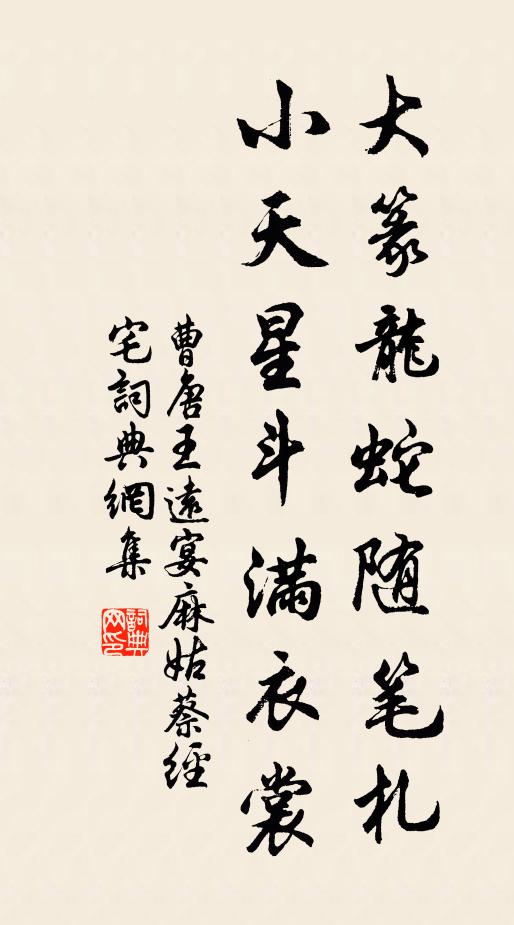 大篆龍蛇随笔札
小天星斗满衣裳
曹唐王遠宴麻姑蔡經
宅詞典網集
詞典网印